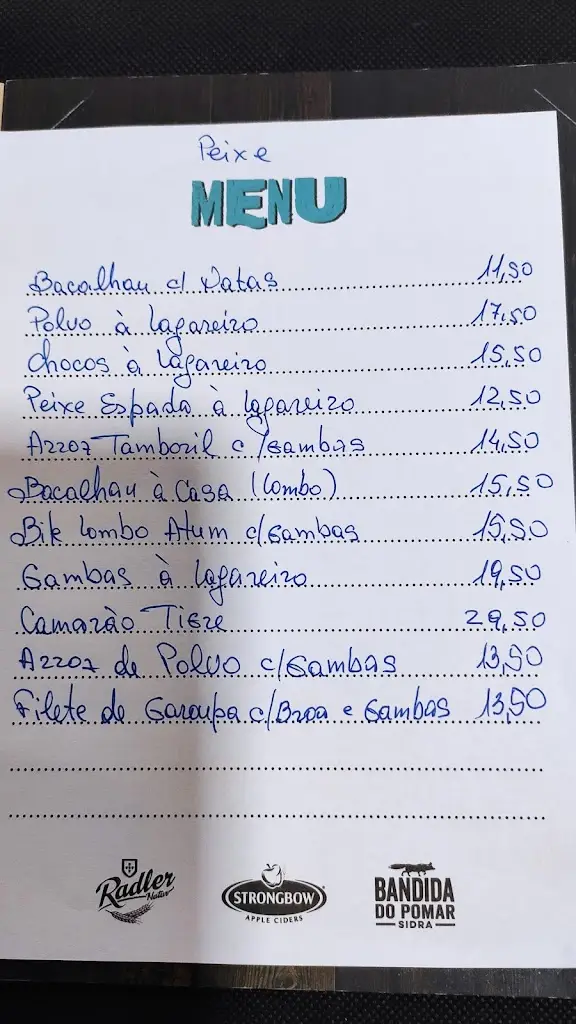 Peixe
MENU
Bacalhau c/ Natas 11,90
Polvo à lagareiro 17,50
Chocos à lagareiro 15,50
Peixe Espada à lagareiro 12,50
Arroz Tamboril c/Gambas 14,50
Bacalhau à Casa (lombo) 15,50
Bife lombo Atum c/Gambas 15,90
Gambas à lagareiro 19,50
Camarão Tigre 29,50
Arroz de Polvo c/Gambas 13,90
Filete de Garoupa c/Broa e Gambas 13,90
Radler
STRONGBOW
APPLE CIDERS
BANDIDA
DO POMAR
SIDRA